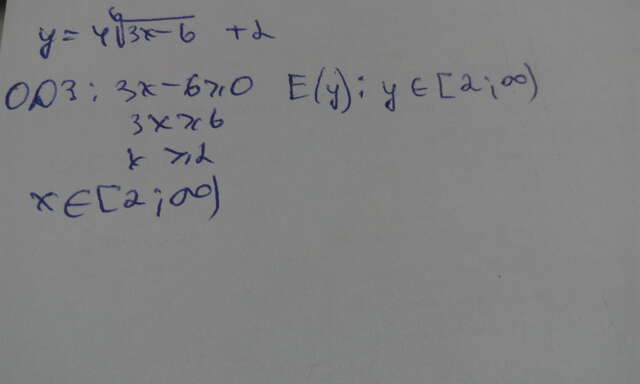 y = 4⁶√(3x-6) + 2
ОДЗ: 3x-6≥0 E(y): y∈[2;∞)
3x≥6
x ≥2
x∈[2;∞)